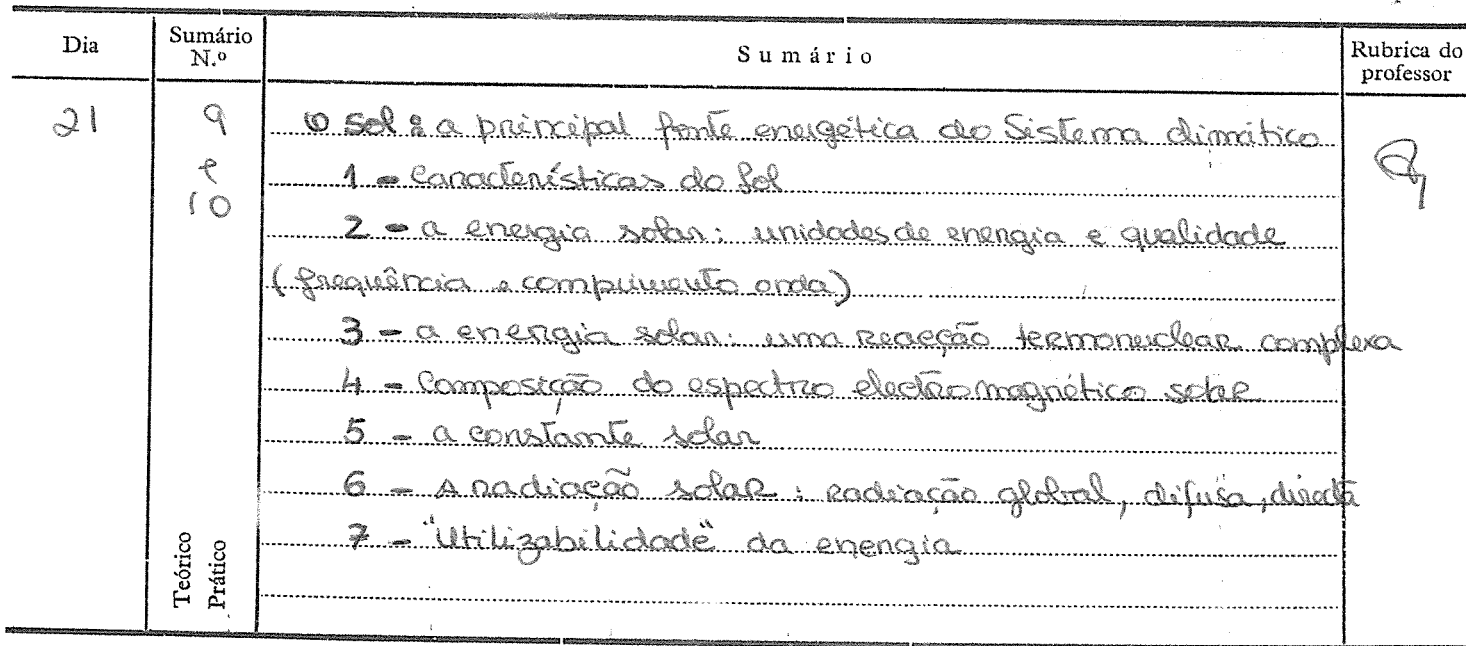 Dia Sumário N.º Sumário Rubrica do professor
21 9 e 10
O Sol: a principal fonte energética do Sistema climático
1 - Características do Sol
2 - a energia solar: unidades de energia e qualidade
(frequência e comprimento onda)
3 - a energia solar: uma reacção termonuclear complexa
4 - Composição do espectro electromagnético solar
5 - a constante solar
6 - A radiação solar: radiação global, difusa, directa
7 - "Utilizabilidade" da energia
Teórico
Prático